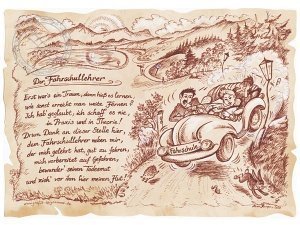 Der Fahrschullehrer
Erst war's ein Traum, dann hieß es lernen
wie sonst erreicht man weite Fernen?
Ich hab' geglaubt, ich schaff' es nie,
in Praxis und in Theorie!
Drum Dank an dieser Stelle hier,
dem Fahrschullehrer neben mir,
der mich gelehrt hat, gut zu fahren,
mich vorbereitet auf Gefahren,
bewunder seinen Todesmut
und zieh' vor ihm hier meinen Hut!
Fahrschule